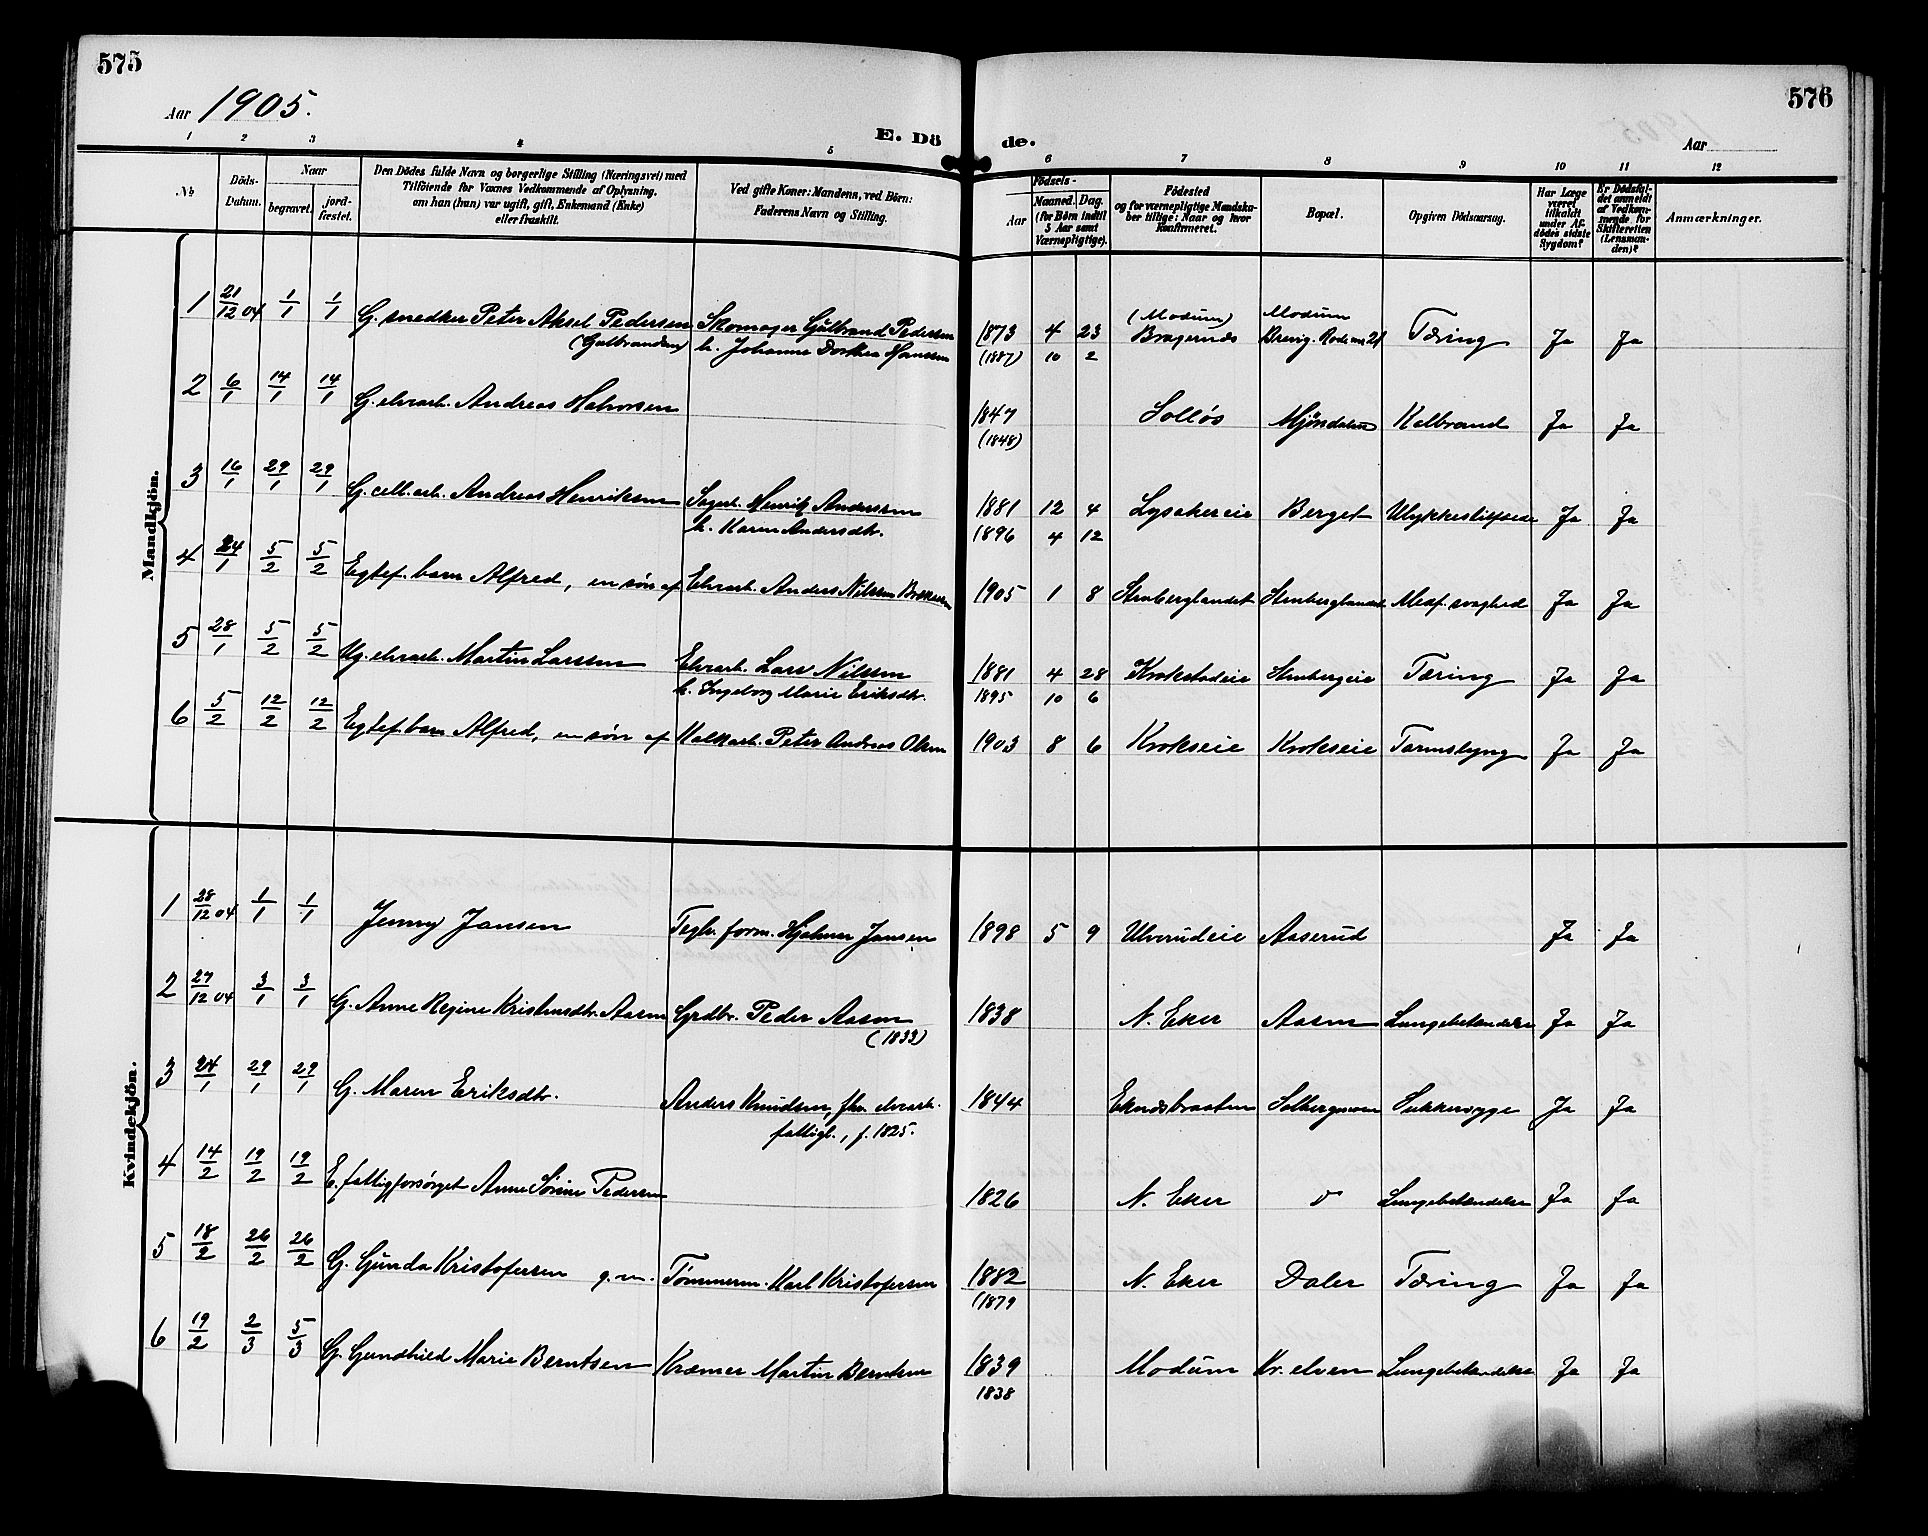 575
576
Aar 1905.
Aar
E. Dö
de.
1 2 3 4 5 6 7 8 9 10 11 12
No
Döds-Datum.
Naar
begravet.
jord-fæstet.
Den Dödes fulde Navn og borgerlige Stilling (Næringsvei) med
Tilföiende for Voxnes Vedkommende af Oplysning,
om han (hun) var ugift, gift, Enkemand (Enke)
eller fraskilt.
Ved gifte Koner: Mandens, ved Börn:
Faderens Navn og Stilling.
Födsels-
Aar
Maaned. Dag.
(for Börn indtil
5 Aar samt
Værnepligtige).
Födested
og for værnepligtige Mandska-
ber tillige: Naar og hvor
Konfirmeret.
Bopæl.
Opgiven Dödsaarsag.
Har Læge
været
tilkaldt
under Af-
dödes sidste
Sygdom?
Er Dödsfal-
det anmeldt
af Vedkom-
mende for
Skifteretten
(Lensman-
den)?
Anmærkninger.
Mandkjön.
1 21/12 04 1/1 1/1 G. snedker Peter Aksel Pedersen Skomager Gulbrand Pedersen 1873 4 23 (Modum) Bragernes Modum Tæring Ja Ja
(Gulbrandsen) h. Johanne Dorthea Hansen (1887) 10 2
2 6/1 14/1 14/1 G. elvearb. Andreas Halvorsen 1847 Solløs Mjøndalen Kolbrand Ja Ja
(1848)
3 16/1 29/1 29/1 G. cell. arb. Andreas Henriksen Sagarb. Henrik Andersen 1881 12 4 Lysakereie Berget Ulykkestilfælde Ja Ja
h. Karen Andersdtr. 1896 4 12
4 24/1 5/2 5/2 Egtef. barn Alfred, en søn af Elvearb. Anders Nilssen 1905 1 8 Stenberglandet Stenberglandet Medf. svaghed Ja Ja
5 28/1 5/2 5/2 Ug. elvearb. Martin Larssen Elvearb. Lars Nilssen 1881 4 28 Krokstadeie Stenbergeie Tæring Ja Ja
h. Ingeborg Marie Eriksdtr. 1895 10 6
6 5/2 12/2 12/2 Egtef. barn Alfred, en søn af Kalkarb. Peter Andreas Olsen 1903 8 6 Krokseie Krokseie Tarmslyng Ja Ja
Kvindekjön.
1 28/12 04 1/1 1/1 Jenny Jansen Teglv. form. Hjalmar Jansen 1898 5 9 Ulverudeie Aaserud Ja Ja
2 27/12 04 3/1 3/1 G. Anne Regine Kristensdtr. Aasen Grdbr. Peder Aasen 1838 N. Eker Aasen Lungebetændelse Ja Ja
(1833)
3 24/1 29/1 29/1 G. Maren Eriksdtr. Anders Knudsen, fhv. elvearb. 1844 Eknesbraaten Solbergmoen Sukkersyge Ja Ja
fattigl., f. 1825.
4 14/2 19/2 19/2 E. fattigforsørget Anne Sørine Pedersen 1826 N. Eker Lungebetændelse Ja Ja
5 18/2 26/2 26/2 G. Gunda Kristofersen g. m. Tømmerm. Karl Kristofersen 1882 N. Eker Doler Tæring Ja Ja
(1879
6 19/2 2/3 5/3 G. Gundhild Marie Berntsen Kræmer Martin Berntsen 1839 Modum Kr. elven Lungebetændelse Ja Ja
1838